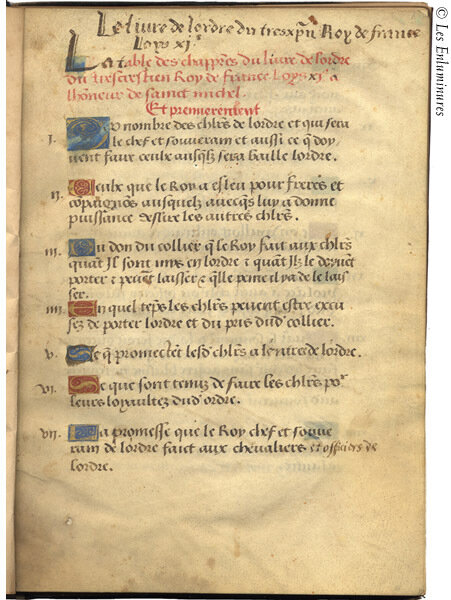 Le livre de lordre du tresxpn Roy de france
Loys xj.
La table des chappres du livre de lordre
du treschrestien Roy de france Loys xj. a
lhoneur de sainct michel.
Et premierement
I. Du nombre des chlrs de lordre et qui sera
le chef et souverain et aussi ce q doy
vent faire ceulx ausqlz sera baille lordre.
II. Ceulx que le Roy a esleu pour freres et
compaignos ausquelz avecqs luy a donne
puissance deslire les autres chlrs.
III. Du don du collier q le Roy fait aux chlrs
quat Il sont mys en lordre & quat Ilz le doivet
porter & peuvet laisser & qlle peine il y a de le lais
ser.
IIII. En quel temps les chlrs peuvent estre excu
sez de porter lordre et du pris dud collier.
V. Ce q promectet lesd chlrs a lentree de lordre.
VI. Ce que sont tenuz de faire les chlrs por
leurs loyaultez dud ordre.
VII. La promesse que le Roy chef et souve
rain de lordre faict aux chevaliers et officiers de
lordre.
© Les Enluminures